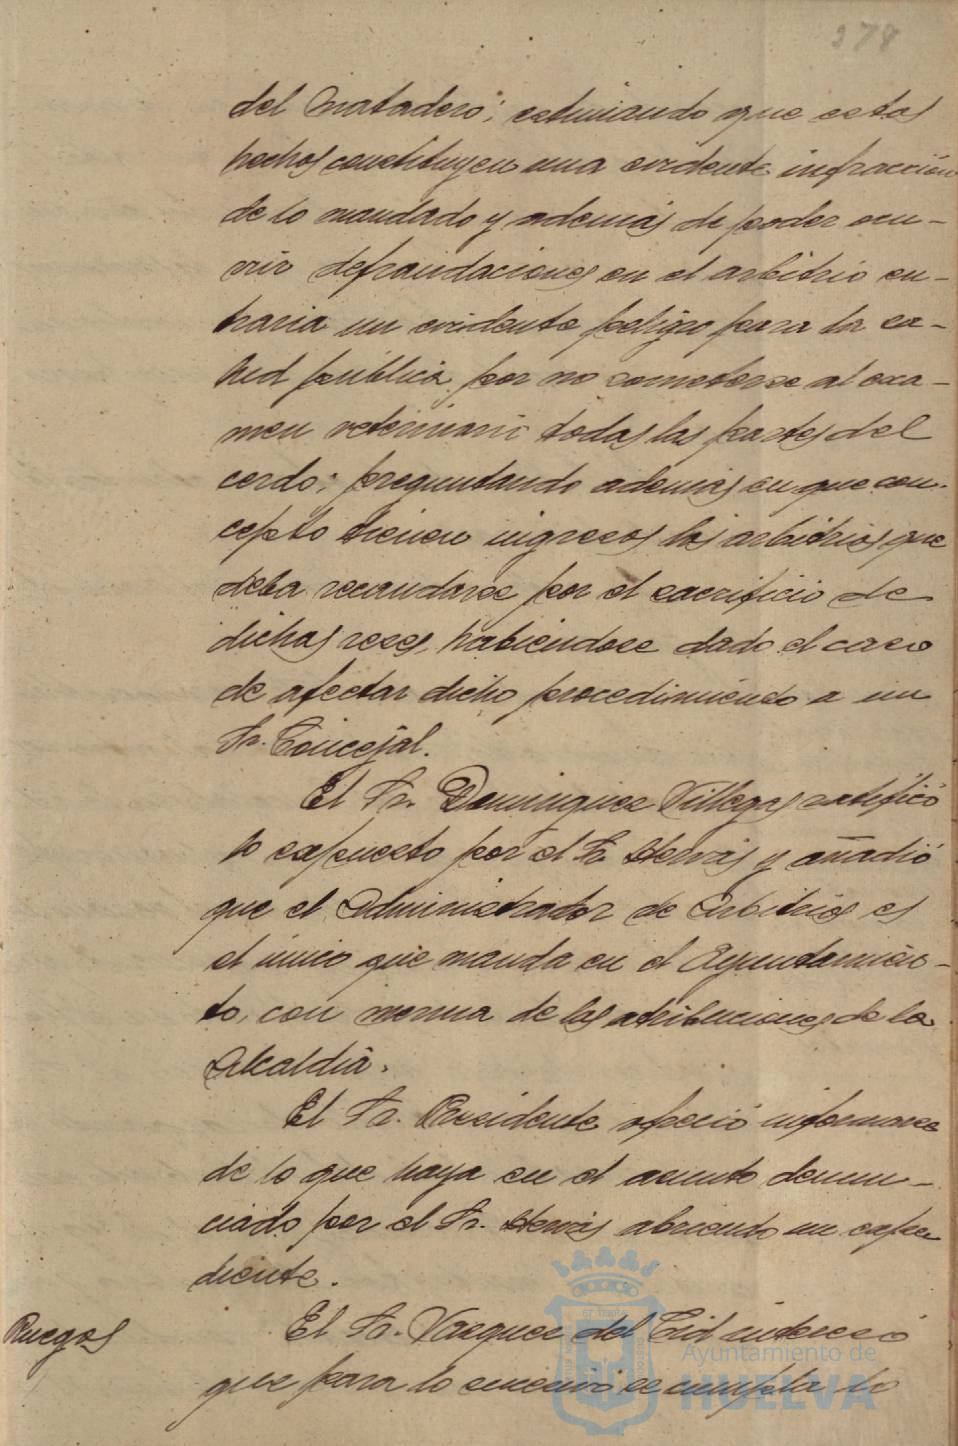 378
del Matadero; estimando que estos
hechos constituyen una evidente infracción
de lo mandado y además de poder ocu-
rrir defraudaciones en el arbitrio en-
traria un evidente peligro para la sa-
lud pública, por no someterse al exa-
men veterinario todas las partes del
cerdo; preguntando además en que con-
cepto tienen ingresos los arbitrios que
deba recaudarse por el sacrificio de
dichas reses, habiendose dado el caso
de afectar dicho procedimiento a un
Sr. Concejal.
El Sr. Dominguez Villegas ratificó
lo expuesto por el Sr. Hervás y añadió
que el Administrador de Arbitrios es
el único que manda en el Ayuntamien-
to, con merma de las atribuciones de la
Alcaldía.
El Sr. Presidente ofreció informarse
de lo que haya en el asunto denun-
ciado por el Sr. Hervás abriendo un expe
diente.
Ruegos
El Sr. Vazquez del Cid interesó
que para lo sucesivo se cumpla lo
Ayuntamiento de
HUELVA